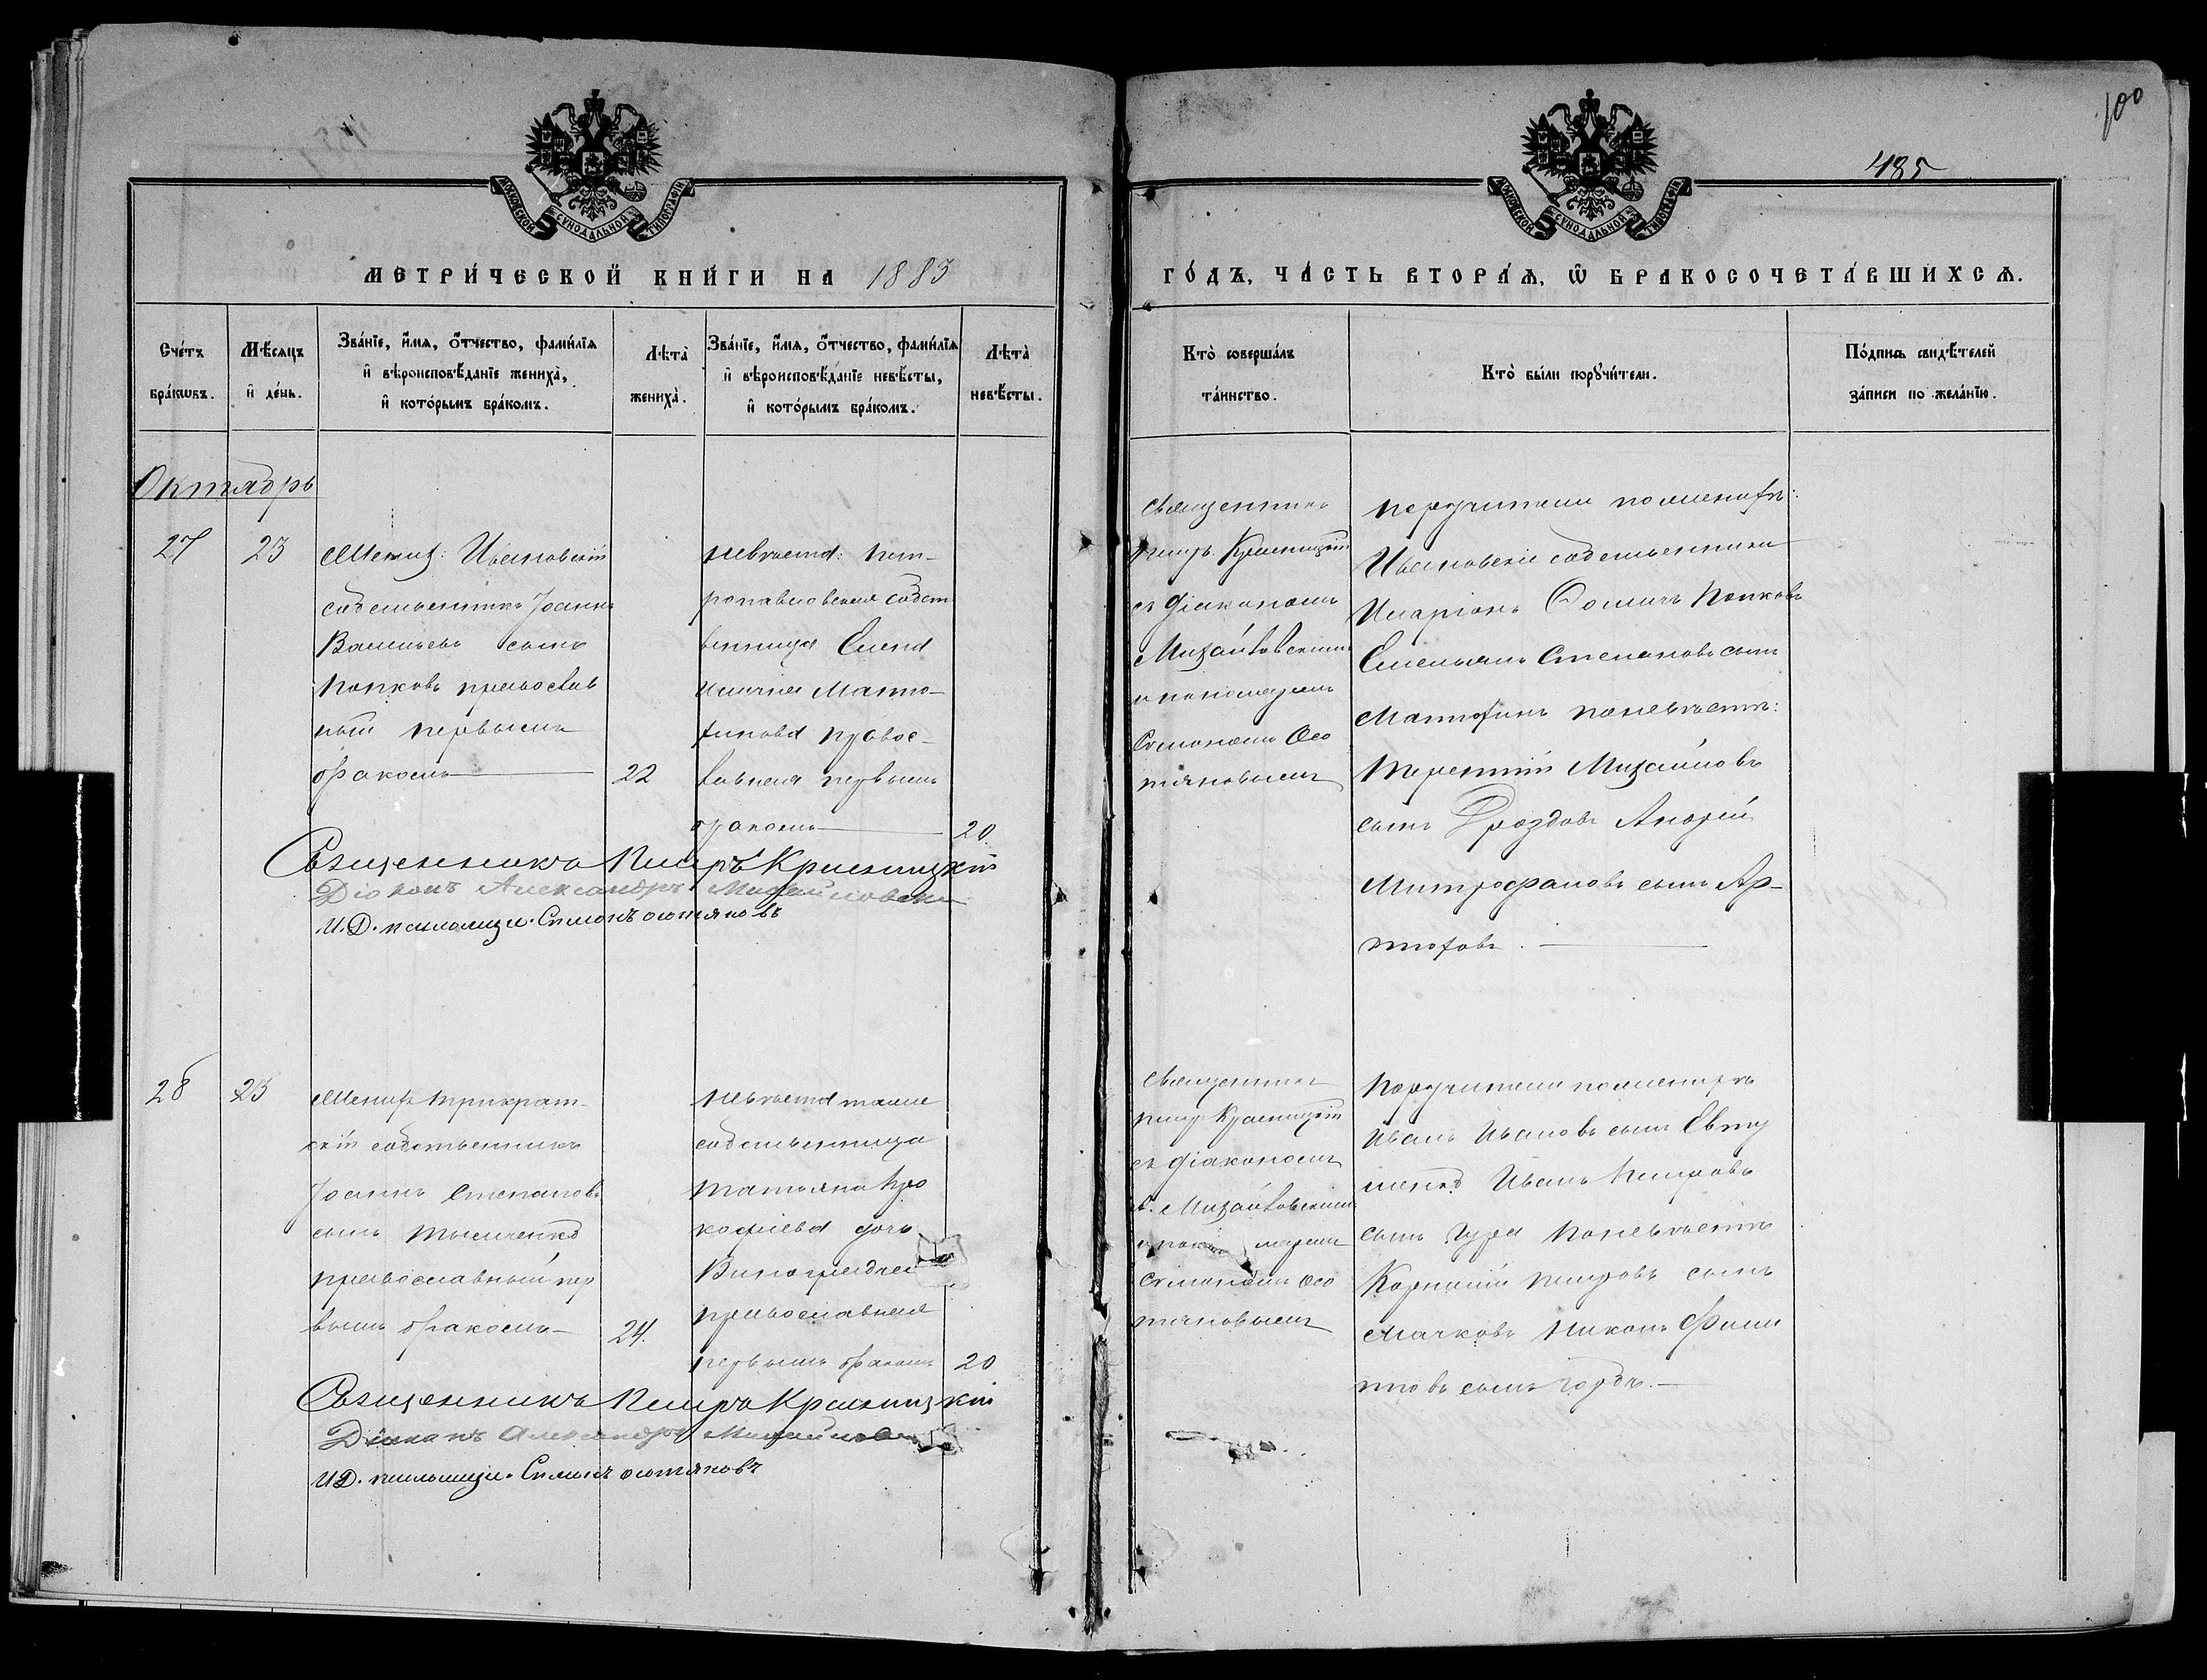 100
485
МОСКОВСКОЙ СѴНОДАЛЬНОЙ ТИПОГРАФІИ
МОСКОВСКОЙ СѴНОДАЛЬНОЙ ТИПОГРАФІИ
МЕТРИ́ЧЕСКОЙ КНИ́ГИ НА 1883
ГО́ДЪ, ЧА́СТЬ ВТОРА́Ѧ, Ѿ БРАКОСОЧЕТА́ВШИХСѦ.
Сче́тъ бра́кѡвъ.
Мѣ́сяцъ и де́нь.
Зва́нїе, и́мя, о́тчество, фами́лїя и вѣроисповѣ́данїе жениха̀, и кото́рымъ бра́комъ.
Лѣта̀ жениха̀.
Зва́нїе, и́мя, о́тчество, фами́лїя и вѣроисповѣ́данїе невѣ́сты, и кото́рымъ бра́комъ.
Лѣта̀ невѣ́сты.
Кто̀ соверша́лъ та́инство.
Кто̀ бы́ли порꙋчи́тели.
По́дпись свидѣ́телей за́писи по жела́нїю.
Октябрь
27
23
Женихъ: Ивановскій
собственникъ Іоаннъ
Васильевъ сынъ
Попковъ православ
ный первымъ
бракомъ
22
невѣста: Пет-
ропавловская собст
венница Елена
Матю-
хинова правос-
лавная первымъ
бракомъ
20.
Священникъ
Петръ Кришицкій
съ діакономъ
Михайловскимъ
и пономаремъ
Симономъ Осо
тяновымъ
поручители по женихѣ:
Ивановскіе собственники
Иларіонъ Ѳоминъ Попковъ
Емельянъ Степановъ сынъ
Матюхинъ по невѣстѣ:
Терентій Михайловъ
сынъ Дроздовъ Андрей
Митрофановъ сынъ Ар-
тюховъ.
Священникъ Петръ Кришицкій
Діаконъ Александръ Михайловскі
И.Д. псаломщи. Симонъ осотяновъ
28
23
Женихъ Трикрат-
скій собственникъ
Іоаннъ Степановъ
сынъ Тимченко
православный пер
вымъ бракомъ
24.
невѣста также
собственница
Татьяна Про
кофіева дочь
православная
первымъ бракомъ
20
Священникъ
Петръ Кришицкій
съ діакономъ
А. Михайловскимъ
Симономъ Осо
тяновымъ
Поручители по женихѣ
Иванъ Ивановъ сынъ Евту
шенко Иванъ Петровъ
сынъ Гура по невѣстѣ
Корнилій Петровъ сынъ
Мачковъ Никонъ Фили
повъ сынъ Гордъ.
Священникъ Петръ Кришицкій
Діаконъ Александръ
И.Д. псаломщи. Симонъ осотяновъ